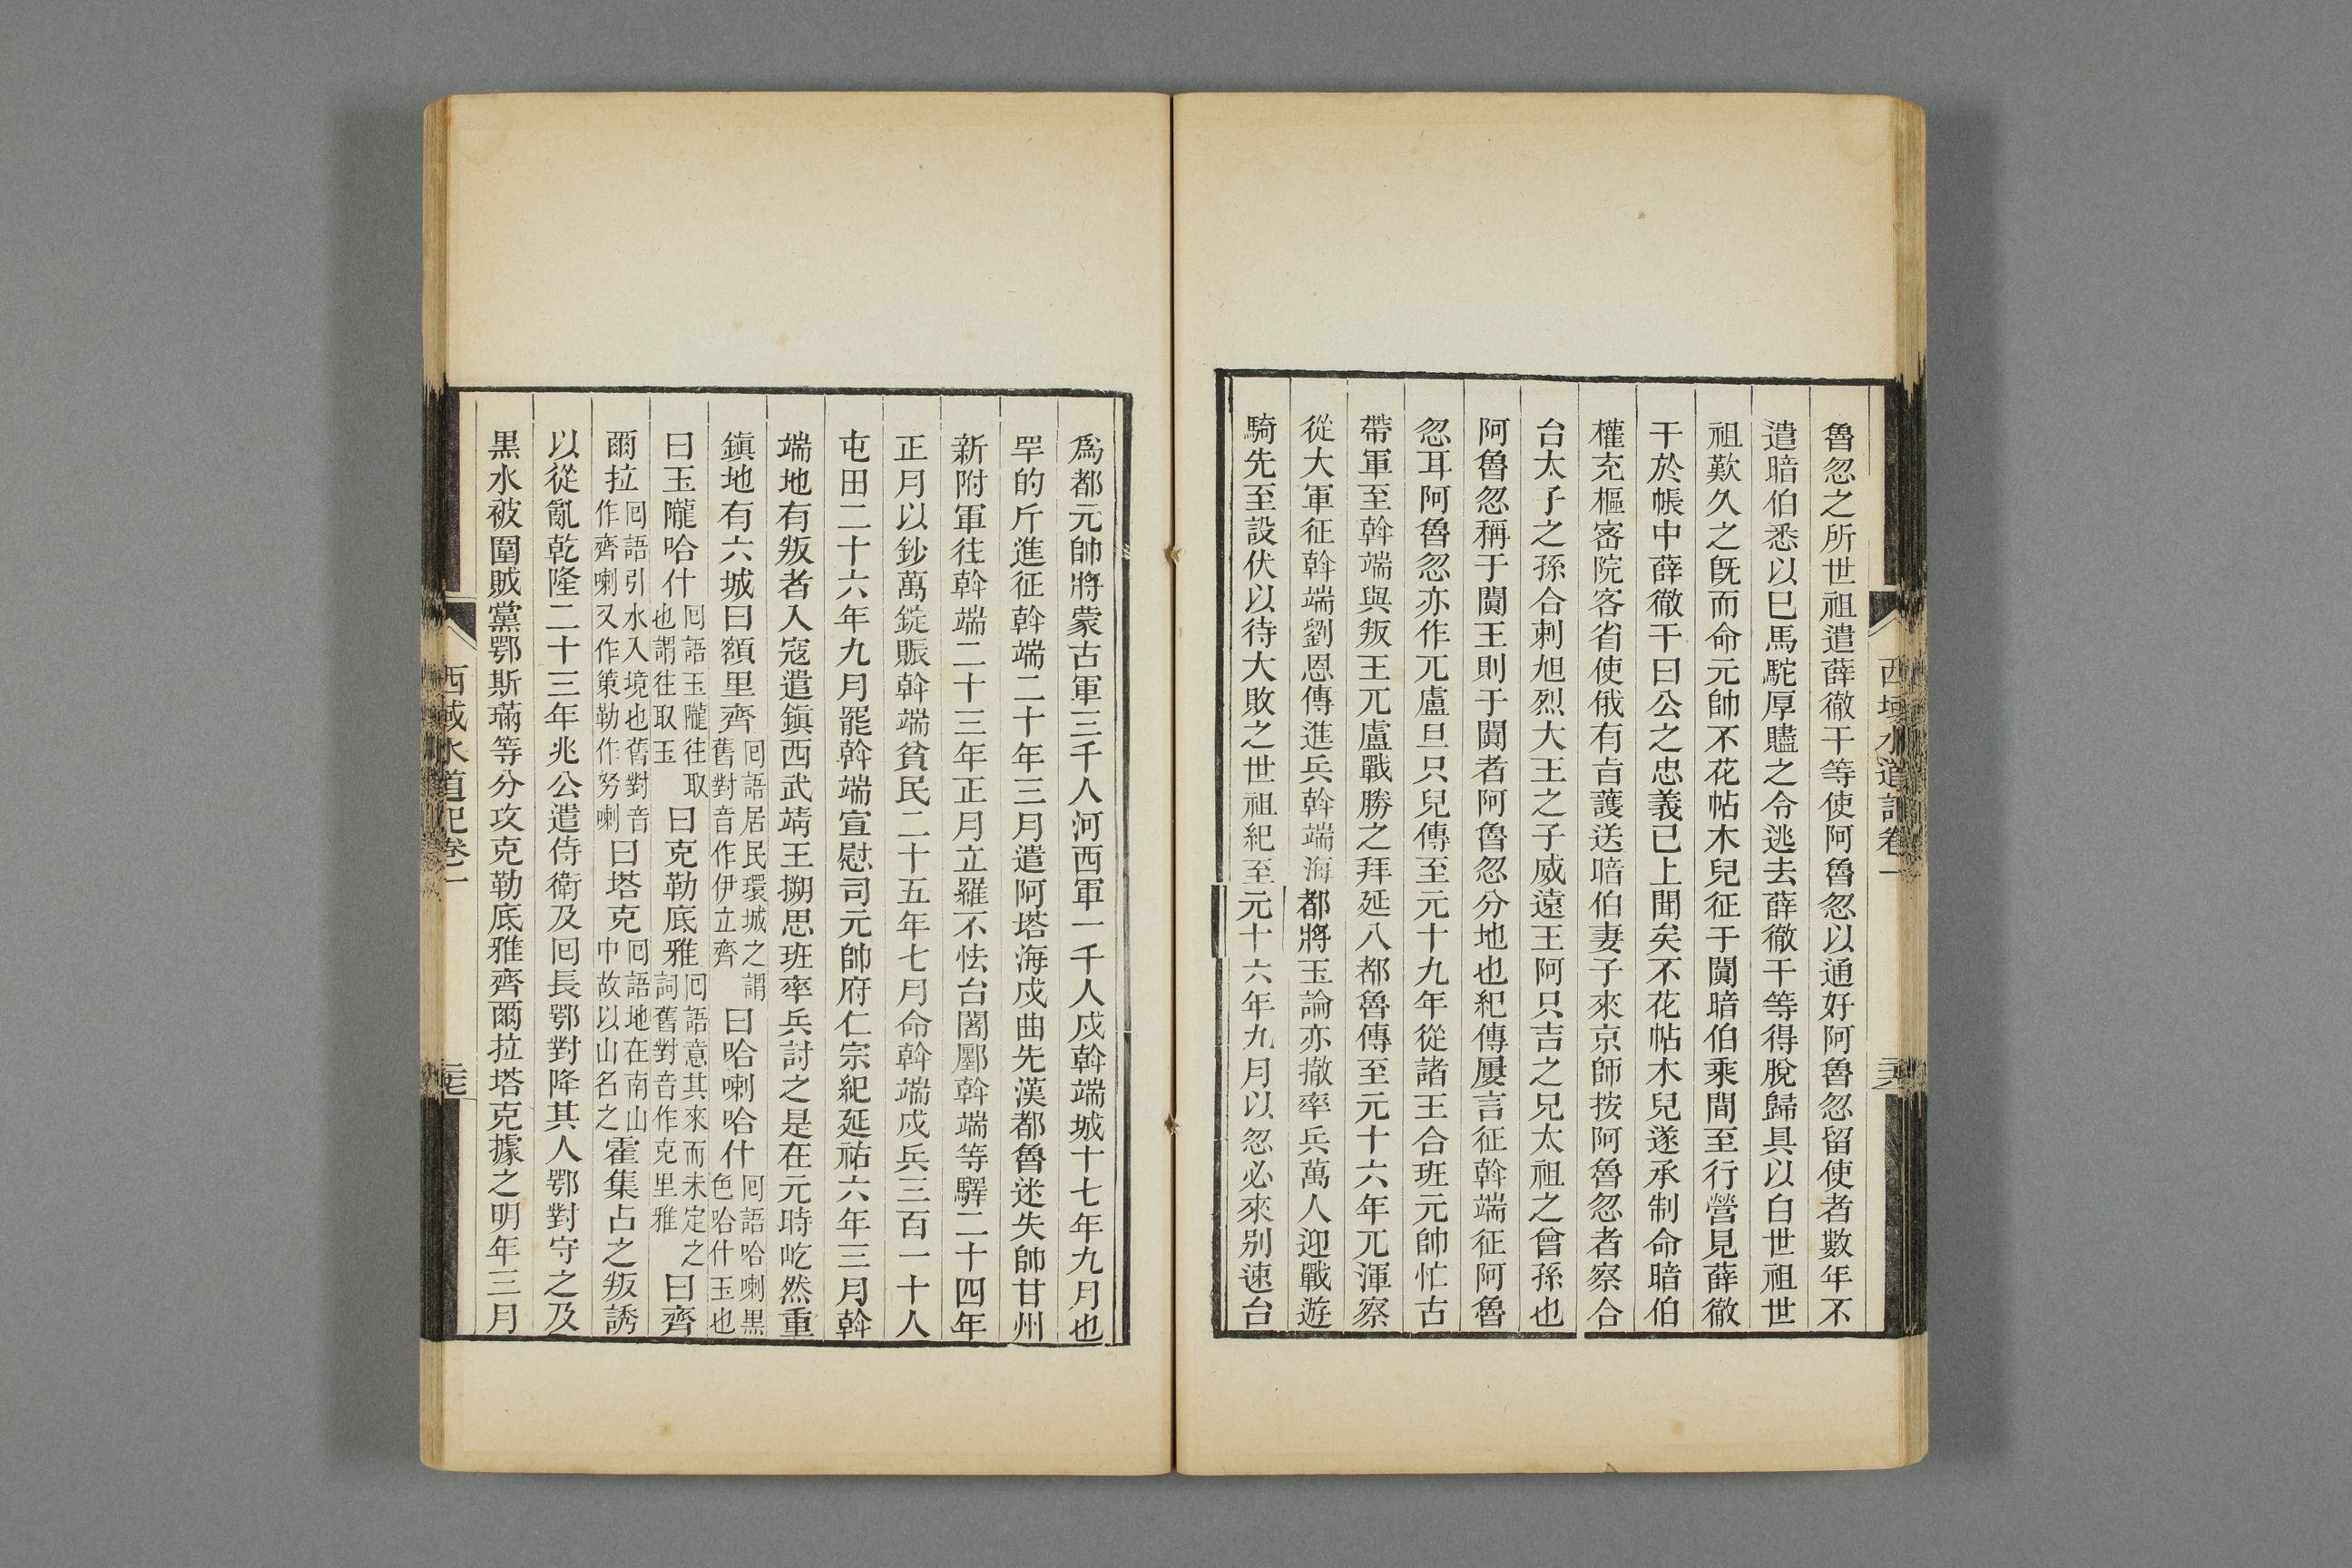 西域水道記卷一
二十六
魯忽之所世祖遣薛徹干等使阿魯忽以通好阿魯忽留使者數年不
遣暗伯悉以巳馬駝厚贐之令逃去薛徹干等得脫歸具以白世祖世
祖歎久之旣而命元帥不花帖木兒征于闐暗伯乘間至行營見薛徹
干於帳中薛徹干曰公之忠義已上聞矣不花帖木兒遂承制命暗伯
權充樞密院客省使俄有旨護送暗伯妻子來京師按阿魯忽者察合
台太子之孫合剌旭烈大王之子威遠王阿只吉之兄太祖之曾孫也
阿魯忽稱于闐王則于闐者阿魯忽分地也紀傳屢言征斡端征阿魯
忽耳阿魯忽亦作兀盧旦只兒傳至元十九年從諸王合班元帥忙古
帶軍至斡端與叛王兀盧戰勝之拜延八都魯傳至元十六年兀渾察
從大軍征斡端劉恩傳進兵斡端海都將玉論亦撤率兵萬人迎戰遊
騎先至設伏以待大敗之世祖紀至元十六年九月以忽必來别速台
爲都元帥將蒙古軍三千人河西軍一千人戍斡端城十七年九月也
罕的斤進征斡端二十年三月遣阿塔海戍曲先漢都魯迷失帥甘州
新附軍往斡端二十三年正月立羅不怯台闍鄽斡端等驛二十四年
正月以鈔萬錠賑斡端貧民二十五年七月命斡端戍兵三百一十人
屯田二十六年九月罷斡端宣慰司元帥府仁宗紀延祐六年三月斡
端地有叛者入寇遣鎭西武靖王搠思班率兵討之是在元時屹然重
鎭地有六城曰額里齊回語居民環城之謂舊對音作伊立齊曰哈喇哈什回語哈喇黑色哈什玉也
曰玉隴哈什回語玉隴往取也謂往取玉曰克勒底雅回語意其來而未定之詞舊對音作克里雅曰齊
爾拉回語引水入境也舊對音作齊喇又作策勒作努喇曰塔克回語地在南山中故以山名之霍集占之叛誘
以從亂乾隆二十三年兆公遣侍衛及回長鄂對降其人鄂對守之及
黑水被圍賊黨鄂斯璊等分攻克勒底雅齊爾拉塔克據之明年三月
西域水道記卷一
二十七